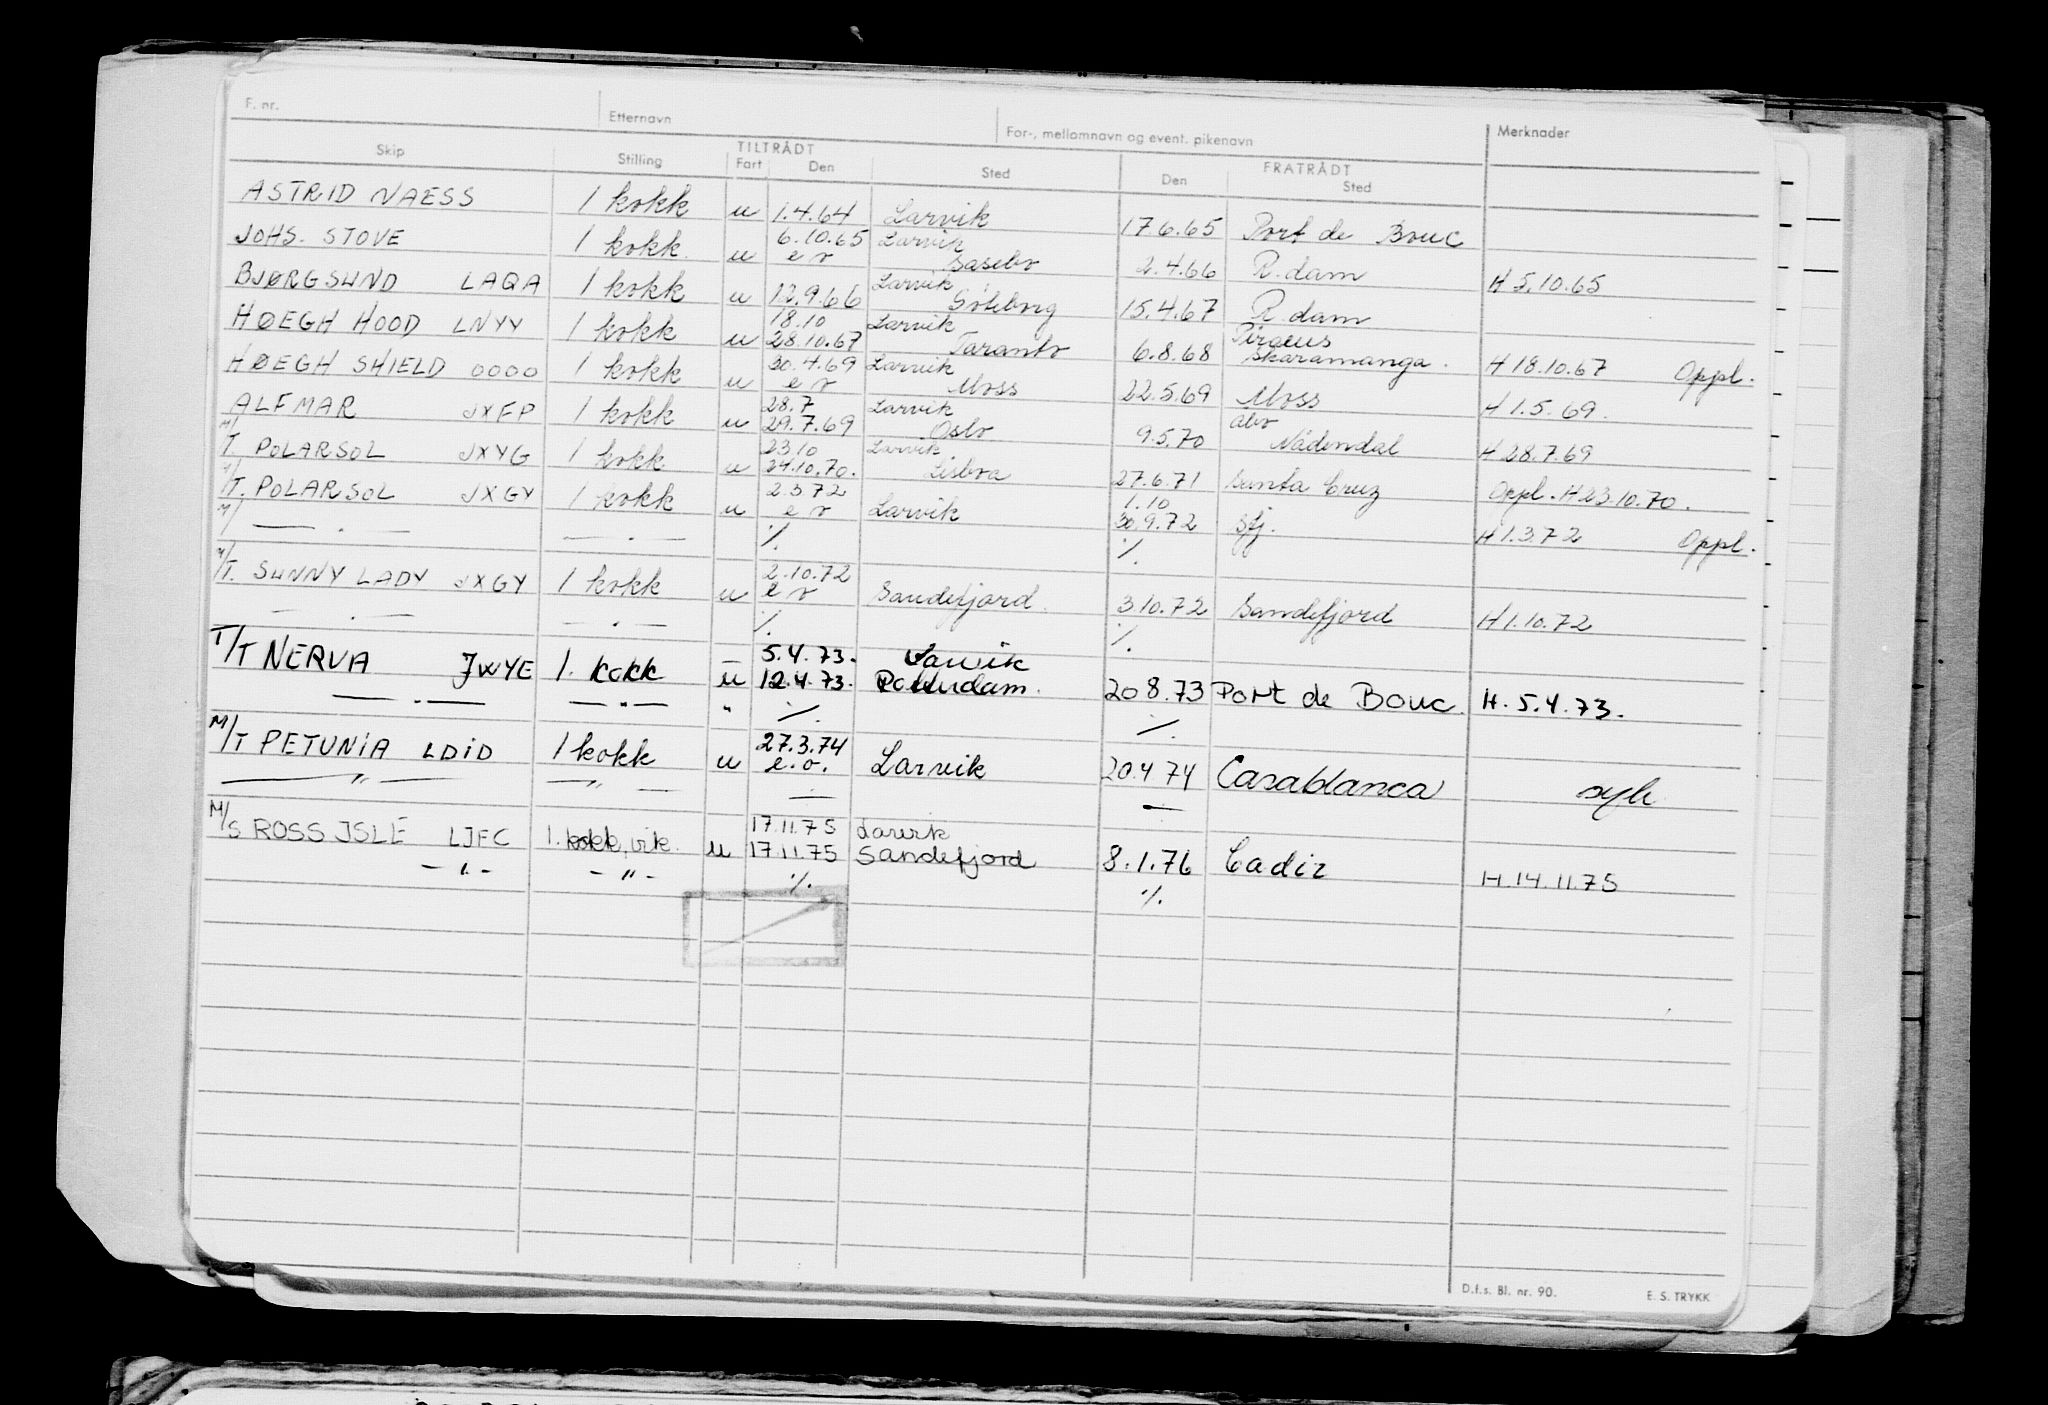 F. nr. Etternavn For-, mellomnavn og event. pikenavn Merknader
Skip Stilling TILTRÅDT Fart Den Sted FRATRÅDT Den Sted
ASTRID NAESS 1 kokk u 1.4.64 Larvik 17.6.65 Port de Bouc
JOHS. STOVE 1 kokk u 6.10.65 e o Larvik Sasebo 2.4.66 R.dam H 5.10.65
BJØRGSUND LAQA 1 kokk u 12.9.66 Larvik Göteborg 15.4.67 R.dam
HØEGH HOOD LNYY 1 kokk u 18.10 28.10.67 Larvik Taranto 6.8.68 Piraeus Skaramanga. H 18.10.67 Oppl.
HØEGH SHIELD OOOO 1 kokk u 30.4.69 e o Larvik Moss 22.5.69 Moss H 1.5.69.
ALFMAR JXFP 1 kokk u 28.7 29.7.69 Larvik Oslo 9.5.70 Åbo Nådendal H 28.7.69
M/T. POLARSOL JXYG 1 kokk u 23.10 24.10.70. Larvik Lisboa 27.6.71 Santa Cruz Oppl. H 23.10.70.
M/T. POLARSOL JXGY 1 kokk u 2.3.72 e o Larvik 1.10 30.9.72 Sfj. H 1.3.72 Oppl.
M/ — . — — . — ./. ./.
M/T. SUNNY LADY JXGY 1 kokk u 2.10.72 e o Sandefjord. 3.10.72 Sandefjord H 1.10.72
— . — — . — ./. ./.
T/T NERVA JWYE 1. kokk u 5.4.73. 12.4.73. Larvik Rotterdam. 20.8.73 Port de Bouc. H. 5.4.73.
— . — — . — " ./. ./.
M/T PETUNIA LDID 1 kokk u 27.3.74 e.o. Larvik 20.4.74 Casablanca syk
— " — — " — — —
M/S ROSS ISLE LJFC 1. kokk, vik. u 17.11.75 17.11.75 Larvik Sandefjord 8.1.76 Cadiz H. 14.11.75
— " — — " — ./. ./.
D.f.s. Bl. nr. 90. E. S. TRYKK